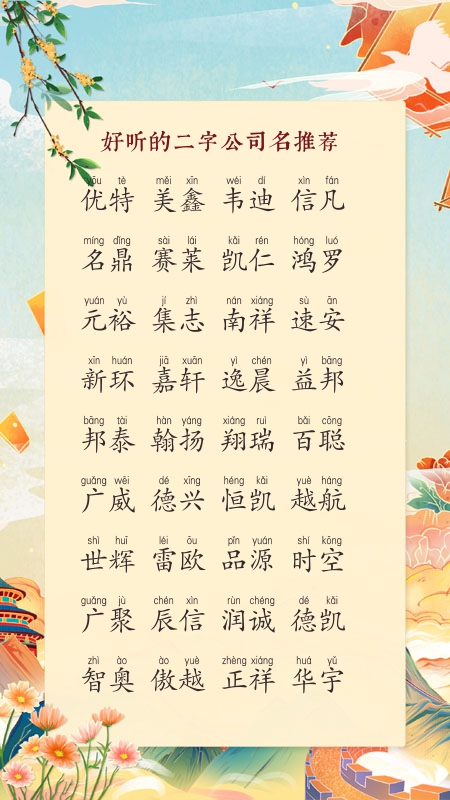 好听的二字公司名推荐
yōu tè měi xīn wéi dí xìn fán
优特 美鑫 韦迪 信凡
míng dǐng sài lái kǎi rén hóng luó
名鼎 赛莱 凯仁 鸿罗
yuán yù jí zhì nán xiáng sù ān
元裕 集志 南祥 速安
xīn huán jiā xuān yì chén yì bāng
新环 嘉轩 逸晨 益邦
bāng tài hàn yáng xiáng ruì bǎi cōng
邦泰 翰扬 翔瑞 百聪
guǎng wēi dé xīng héng kǎi yuè háng
广威 德兴 恒凯 越航
shì huī léi ōu pǐn yuán shí kōng
世辉 雷欧 品源 时空
guǎng jù chén xìn rùn chéng dé kǎi
广聚 辰信 润诚 德凯
zhì ào ào yuè zhèng xiáng huá yǔ
智奥 傲越 正祥 华宇